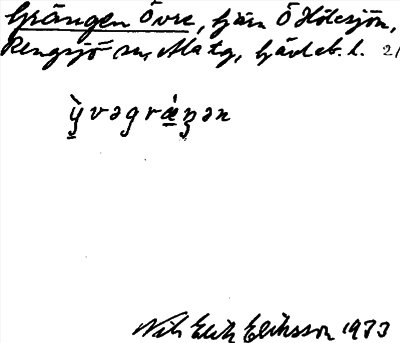 Grängen Övre, tjärn Ö Hölesjön,
Rengsjö sn, Ala tg, Gävleb. l. 21
ỳvəgrǽŋən
Nils Erik Eriksson 1973